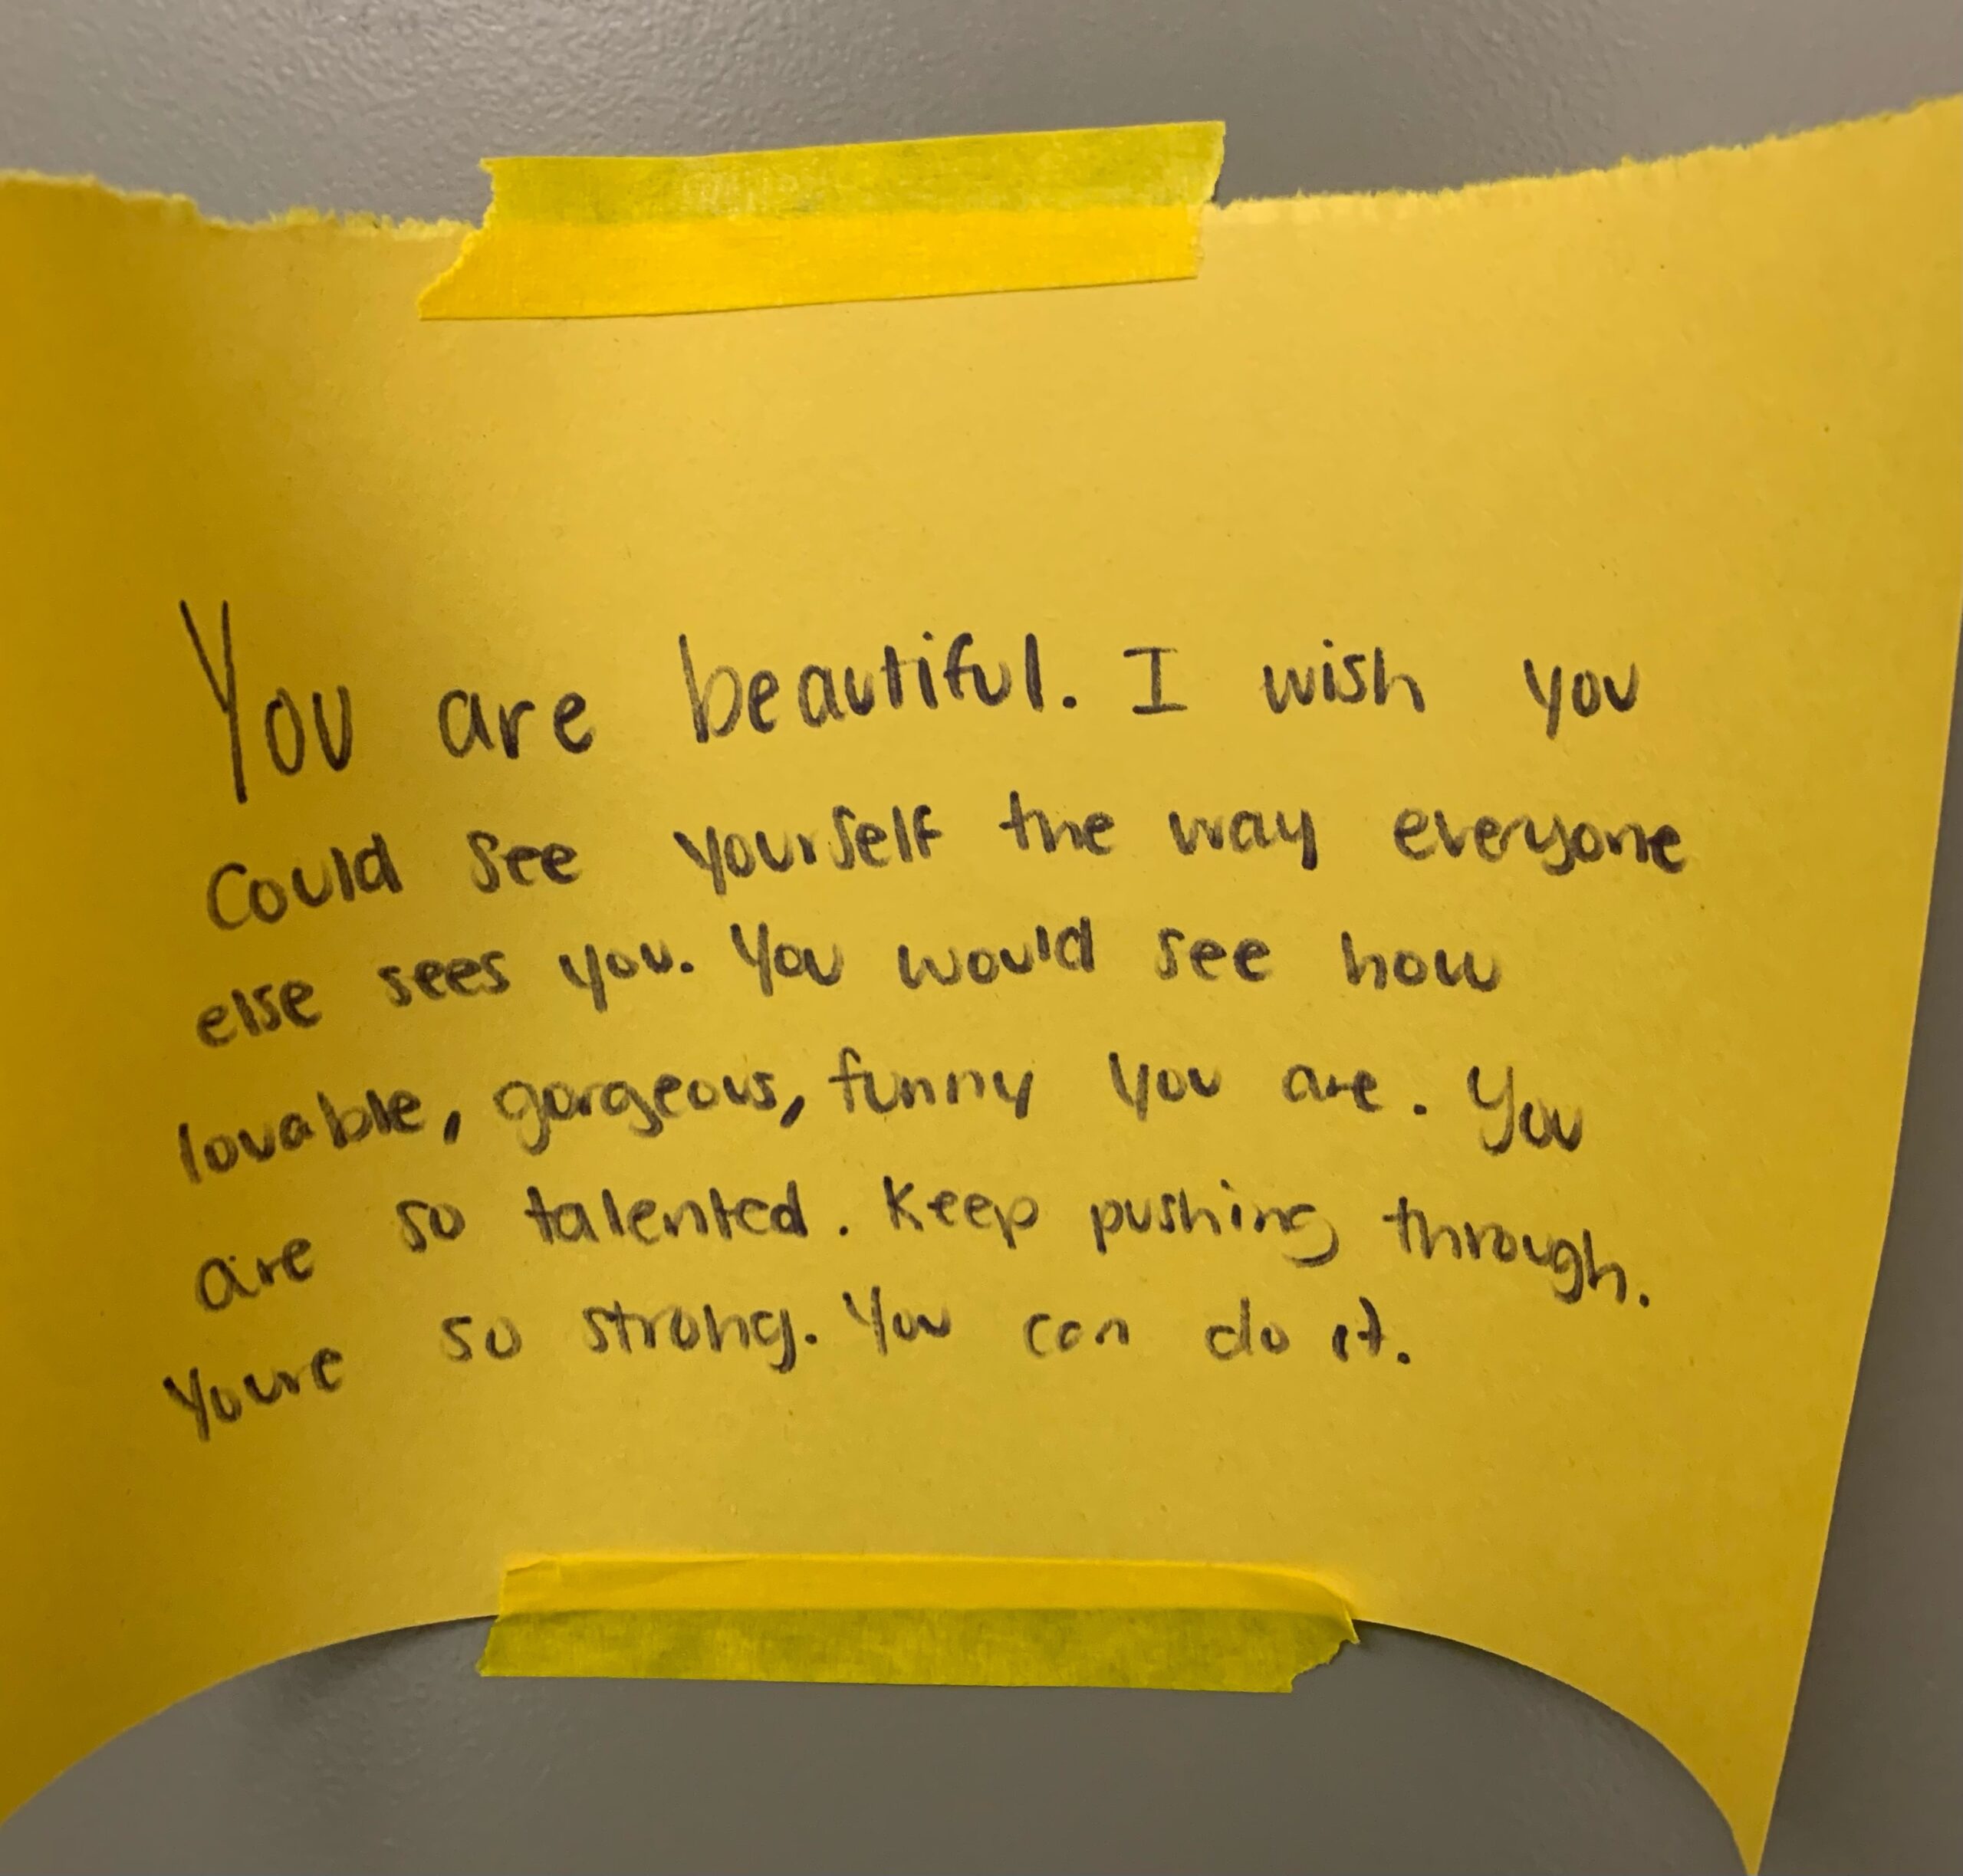 You are beautiful. I wish you
Could see yourself the way everyone
else sees you. You would see how
lovable, gorgeous, funny you are. You
are so talented. Keep pushing through.
Youre so strong. You can do it.